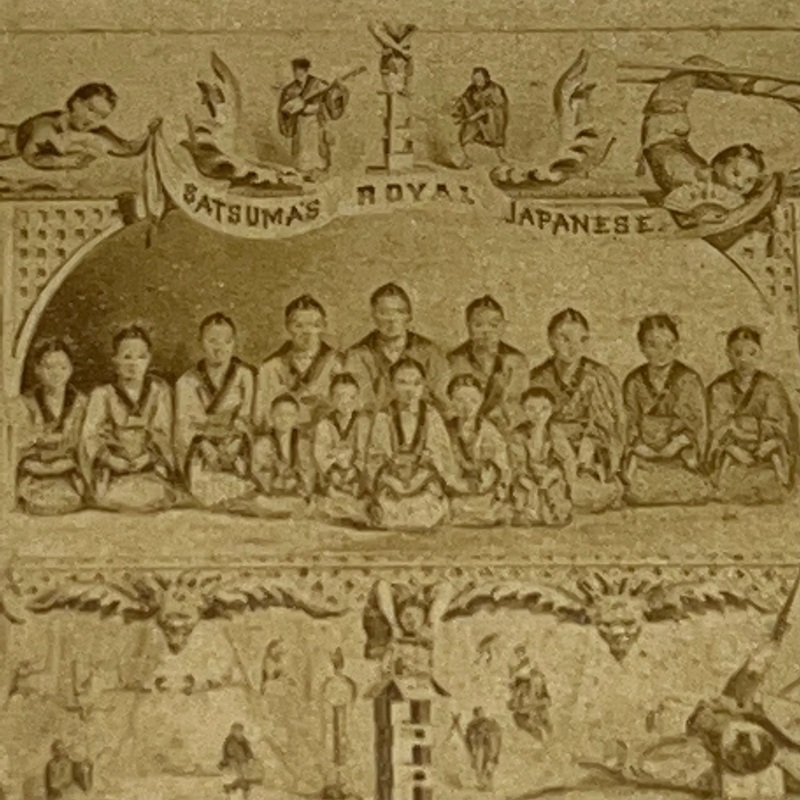 SATSUMA'S ROYAL JAPANESE